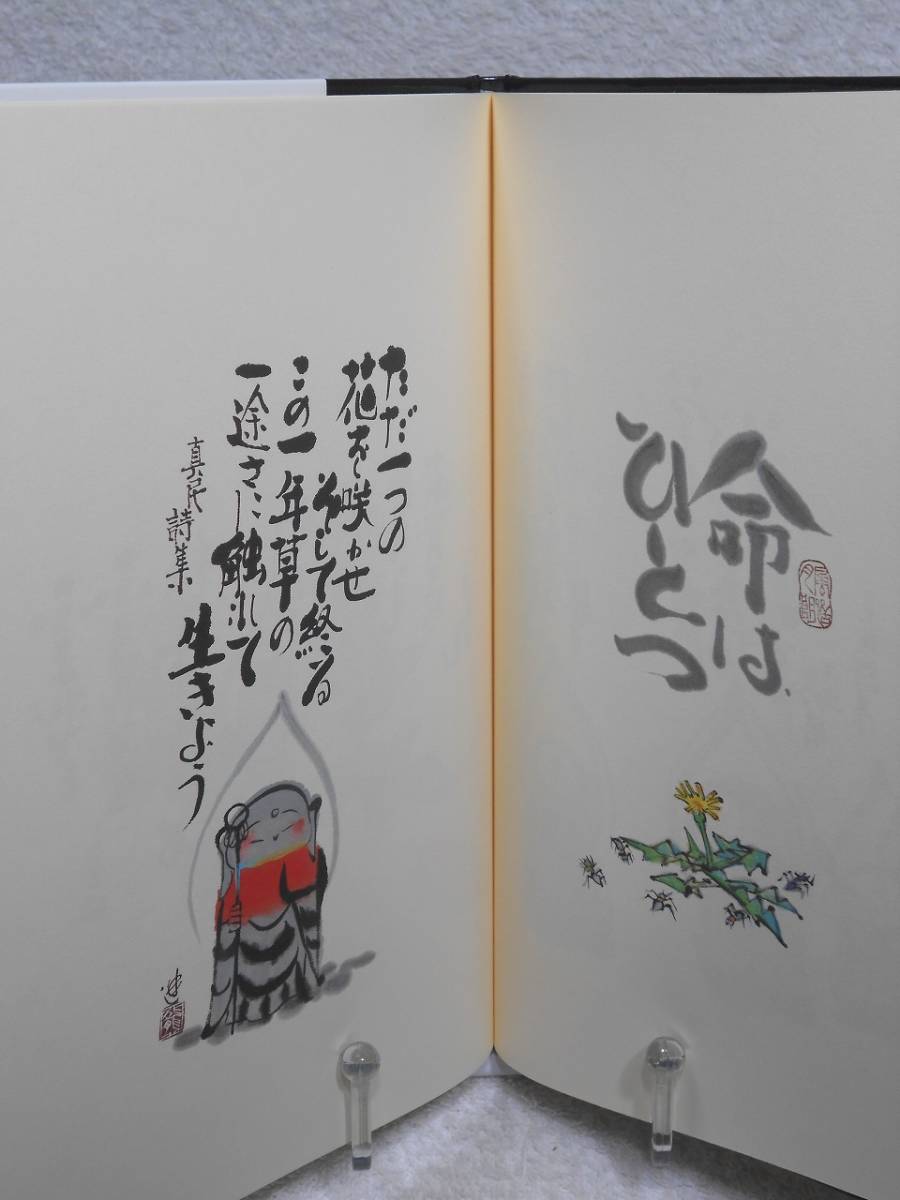 命は、
ひとつ
ただ一つの
花を咲かせ
そして終る
この一年草の
一途さに触れて
生きよう
真民詩集